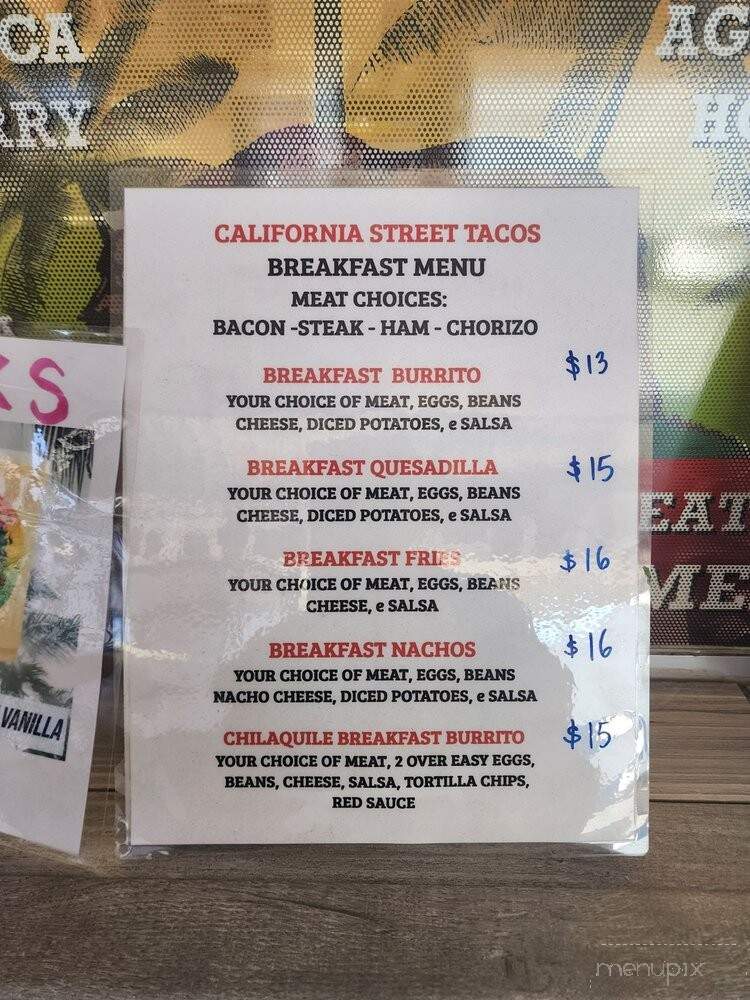 CA
RRY
AG
HO
CALIFORNIA STREET TACOS
BREAKFAST MENU
MEAT CHOICES:
BACON -STEAK - HAM - CHORIZO
BREAKFAST BURRITO $13
YOUR CHOICE OF MEAT, EGGS, BEANS
CHEESE, DICED POTATOES, e SALSA
BREAKFAST QUESADILLA $15
YOUR CHOICE OF MEAT, EGGS, BEANS
CHEESE, DICED POTATOES, e SALSA
BREAKFAST FRIES $16
YOUR CHOICE OF MEAT, EGGS, BEANS
CHEESE, e SALSA
BREAKFAST NACHOS $16
YOUR CHOICE OF MEAT, EGGS, BEANS
NACHO CHEESE, DICED POTATOES, e SALSA
CHILAQUILE BREAKFAST BURRITO $15
YOUR CHOICE OF MEAT, 2 OVER EASY EGGS,
BEANS, CHEESE, SALSA, TORTILLA CHIPS,
RED SAUCE
S
VANILLA
EAT
ME
menupix